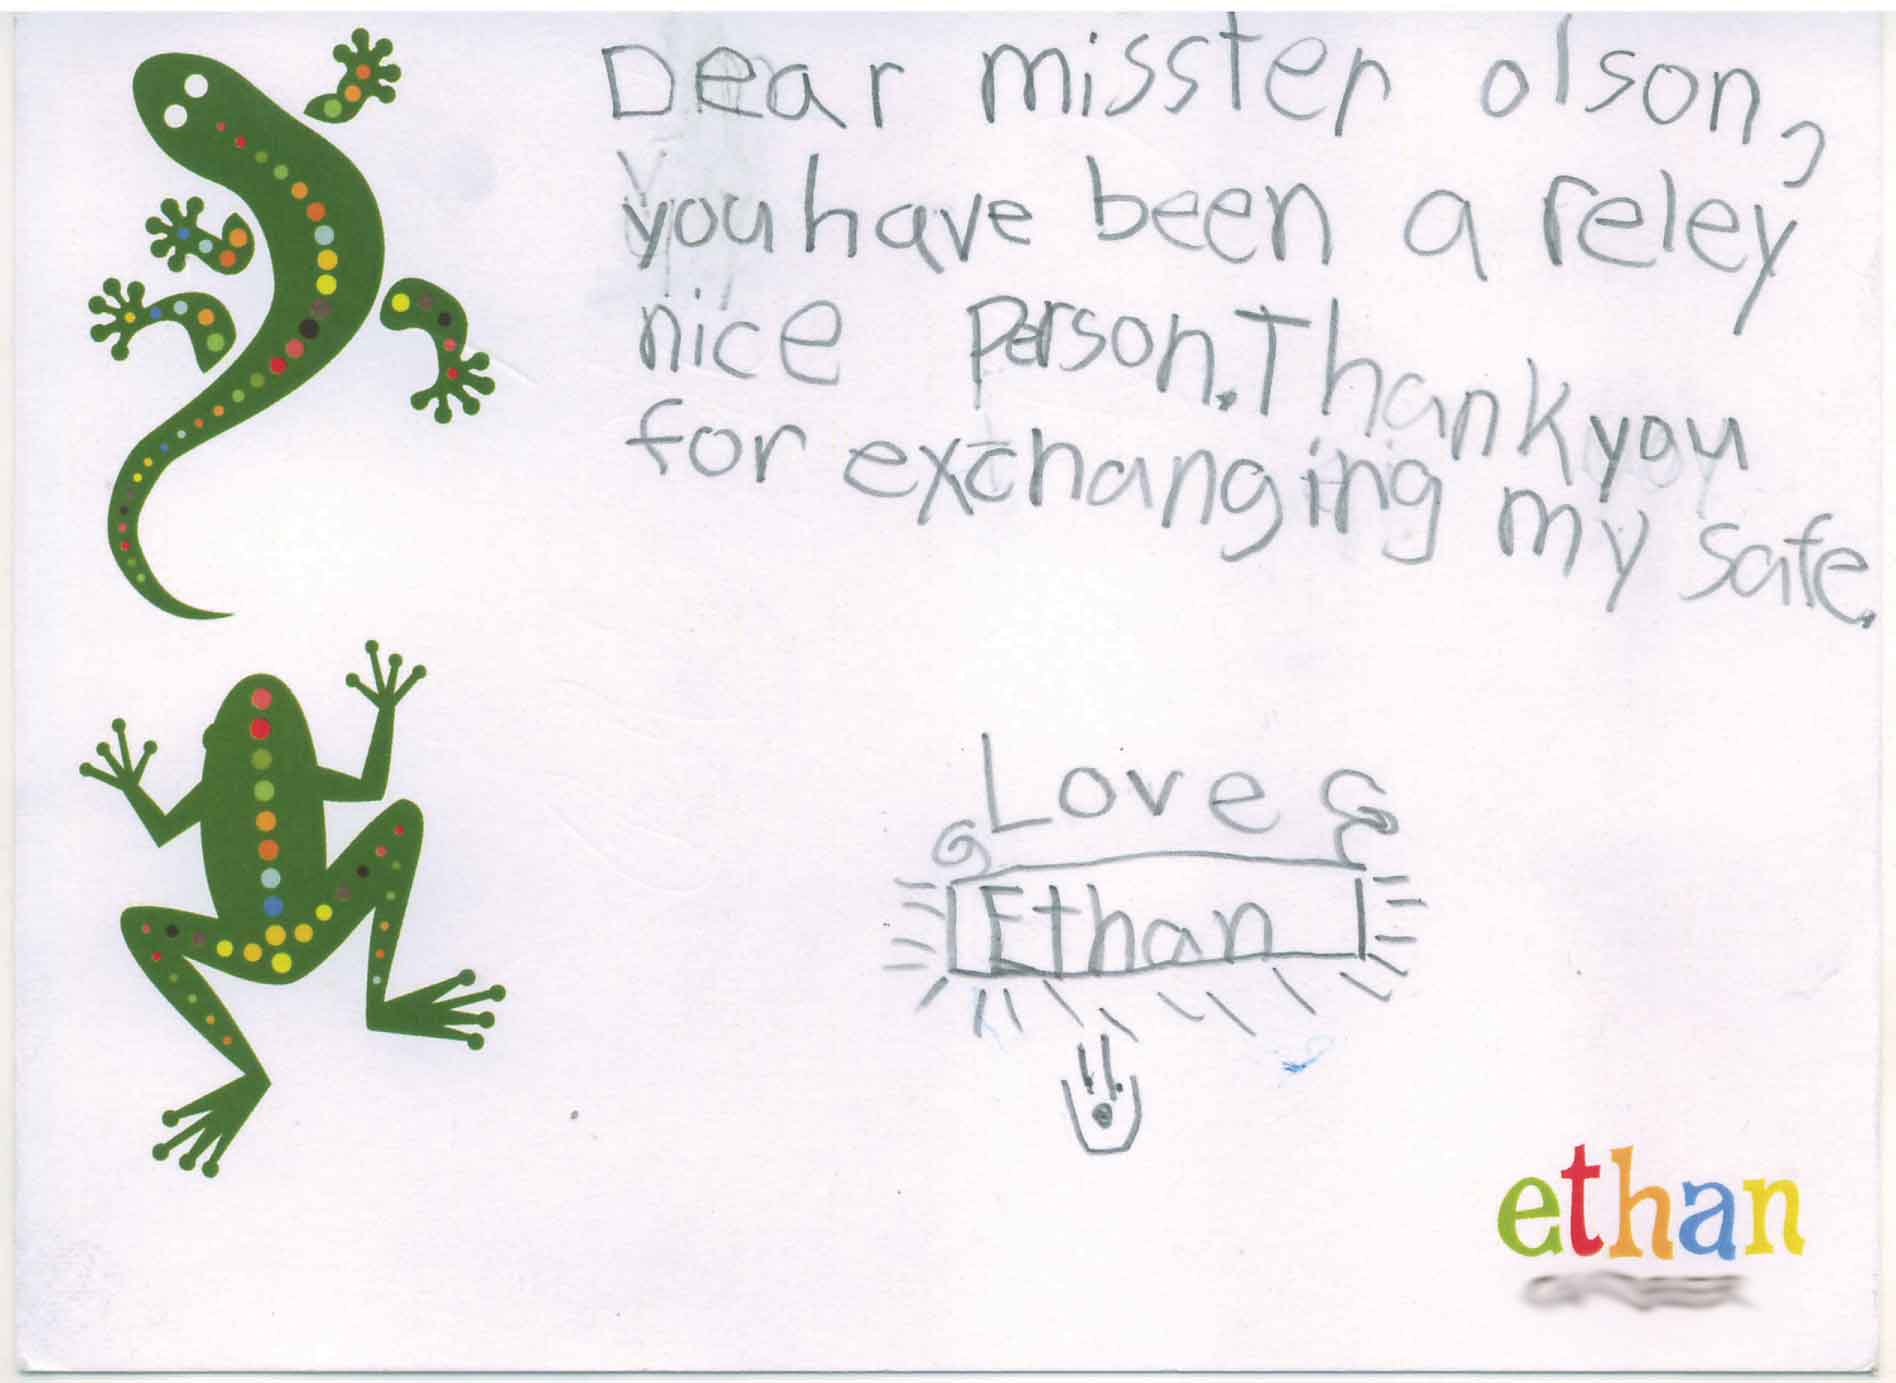 Dear misster olson,
you have been a reley
nice person. Thank you
for exchanging my safe.
Love
Ethan
ethan